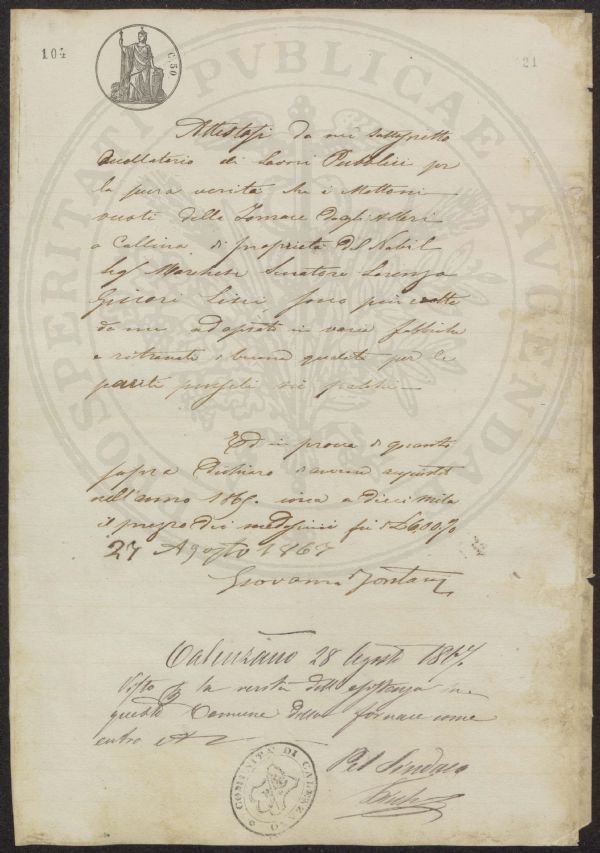 104
C. 50
21
PROSPERITATI PVBLICAE AVGENDAE
Attestasi da me sottoscritto
Accollatario di Lavori Pubblici per
la pura verità che i Mattoni
vuoti della Fornace degli Alleri
a Callina di proprietà del Nobil
Sigr Marchese Senatore Lorenzo
Ginori Lisci sono più volte
da me adoprati in varie fabbriche
e ritrovati di buona qualità per le
pareti
Ed in prova di quanto
sopra Dichiaro d'averne acquistati
nell'anno 1865. circa a dieci mila
il prezzo dei medesimi fu
27 Agosto 1867
Giovanni Fontani
Calenzano 28 Agosto 1867.
Visto per la verità dell'esistenza in
questo Comune della fornace come
entro
COMUNITÀ DI CALENZANO
Pel Sindaco